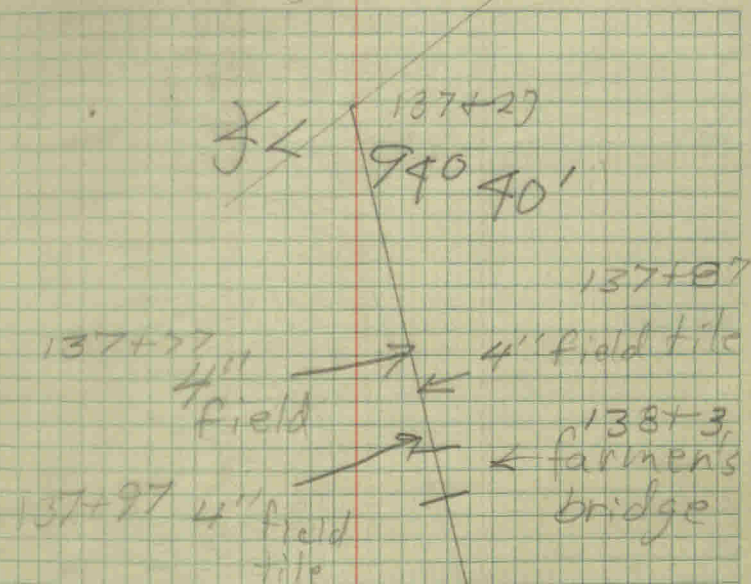 137+27
94° 40'
137+87
137+77
4" field tile
4"
field
138+3
farmer's
bridge
137+97 4" field
tile